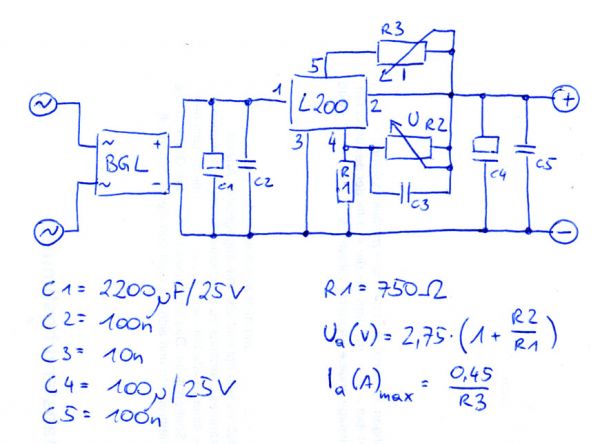 R3
5
I
1
L200
2
U
R2
~
~
+
BGL
~
-
3
4
R1
C1
C2
C3
C4
C5
+
~
-
C1 = 2200µF/25V
C2 = 100n
C3 = 10n
C4 = 100µ/25V
C5 = 100n
R1 = 750Ω
Ua(V) = 2,75·(1 + R2/R1)
Ia(A)max = 0,45/R3